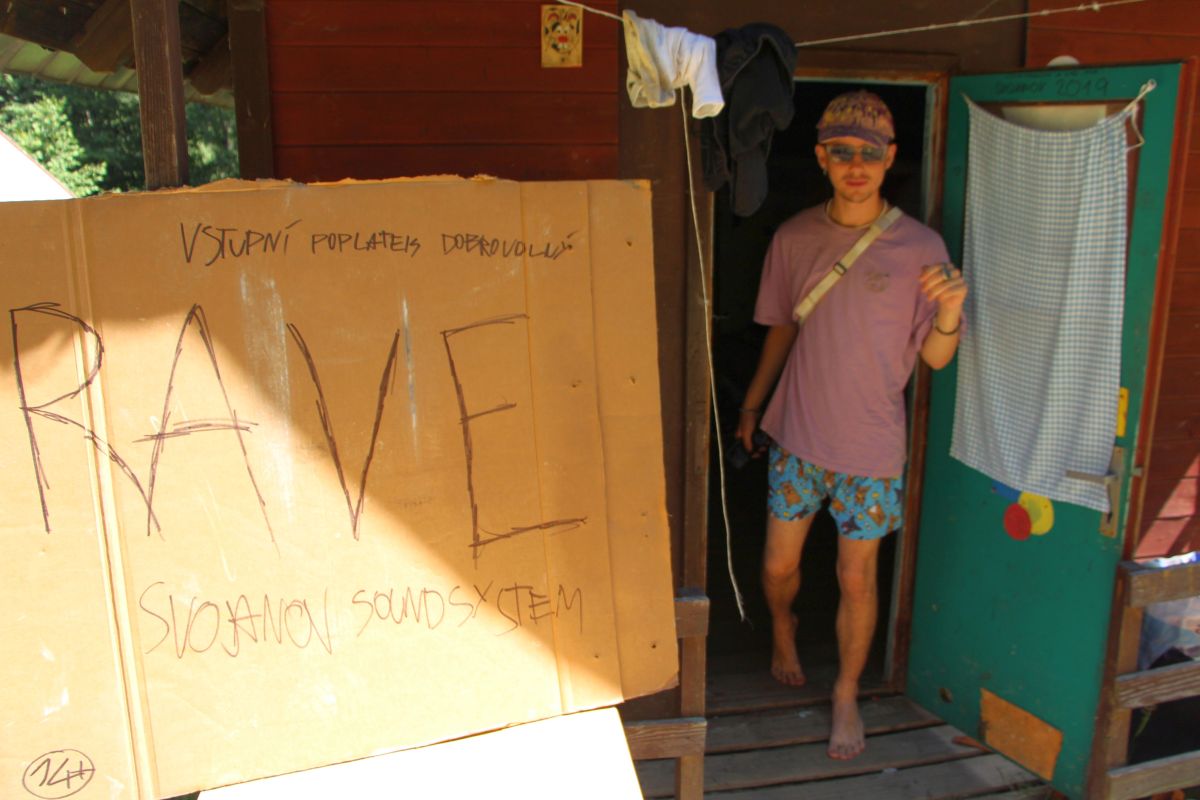 VSTUPNÍ POPLATEK DOBROVOLNÝ
RAVE
SVOJANOV SOUNDSYSTEM
14+
2019